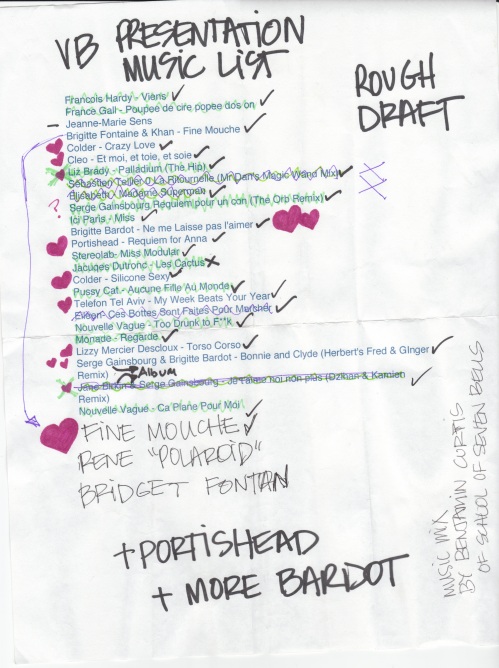 VB PRESENTATION
MUSIC LIST
ROUGH
DRAFT
Francois Hardy - Viens
France Gall - Poupee de cire popee dos on
Jeanne-Marie Sens
Brigitte Fontaine & Khan - Fine Mouche
Colder - Crazy Love
Cleo - Et moi, et toie, et soie
Liz Brady - Palladium (The Hip)
Sebastien Tellier / La Ritournelle (Mr Dan's Magic Wand Mix)
Elisabeth - Madame Superman
?
Serge Gainsbourg Requiem pour un con (The Orb Remix)
Ici Paris - Miss
Brigitte Bardot - Ne me Laisse pas l'aimer
Portishead - Requiem for Anna
Stereolab- Miss Modular
Jacques Dutronc - Les Cactus
Colder - Silicone Sexy
Pussy Cat - Aucune Fille Au Monde
Telefon Tel Aviv - My Week Beats Your Year
Eileen Ces Bottes Sont Faites Pour Marcher
Nouvelle Vague - Too Drunk to F**k
Monade - Regarde
Lizzy Mercier Descloux - Torso Corso
Serge Gainsbourg & Brigitte Bardot - Bonnie and Clyde (Herbert's Fred & GInger
Remix)
Album
Jane Birkin & Serge Gainsbourg - Je t'aime moi non plus
Remix)
Nouvelle Vague - Ca Plane Pour Moi
FINE MOUCHE
RENE "POLAROID"
BRIDGET FONTAN
+ PORTISHEAD
+ MORE BARDOT
MUSIC MIX
BY BENJAMIN CURTIS
OF SCHOOL OF SEVEN BELLS